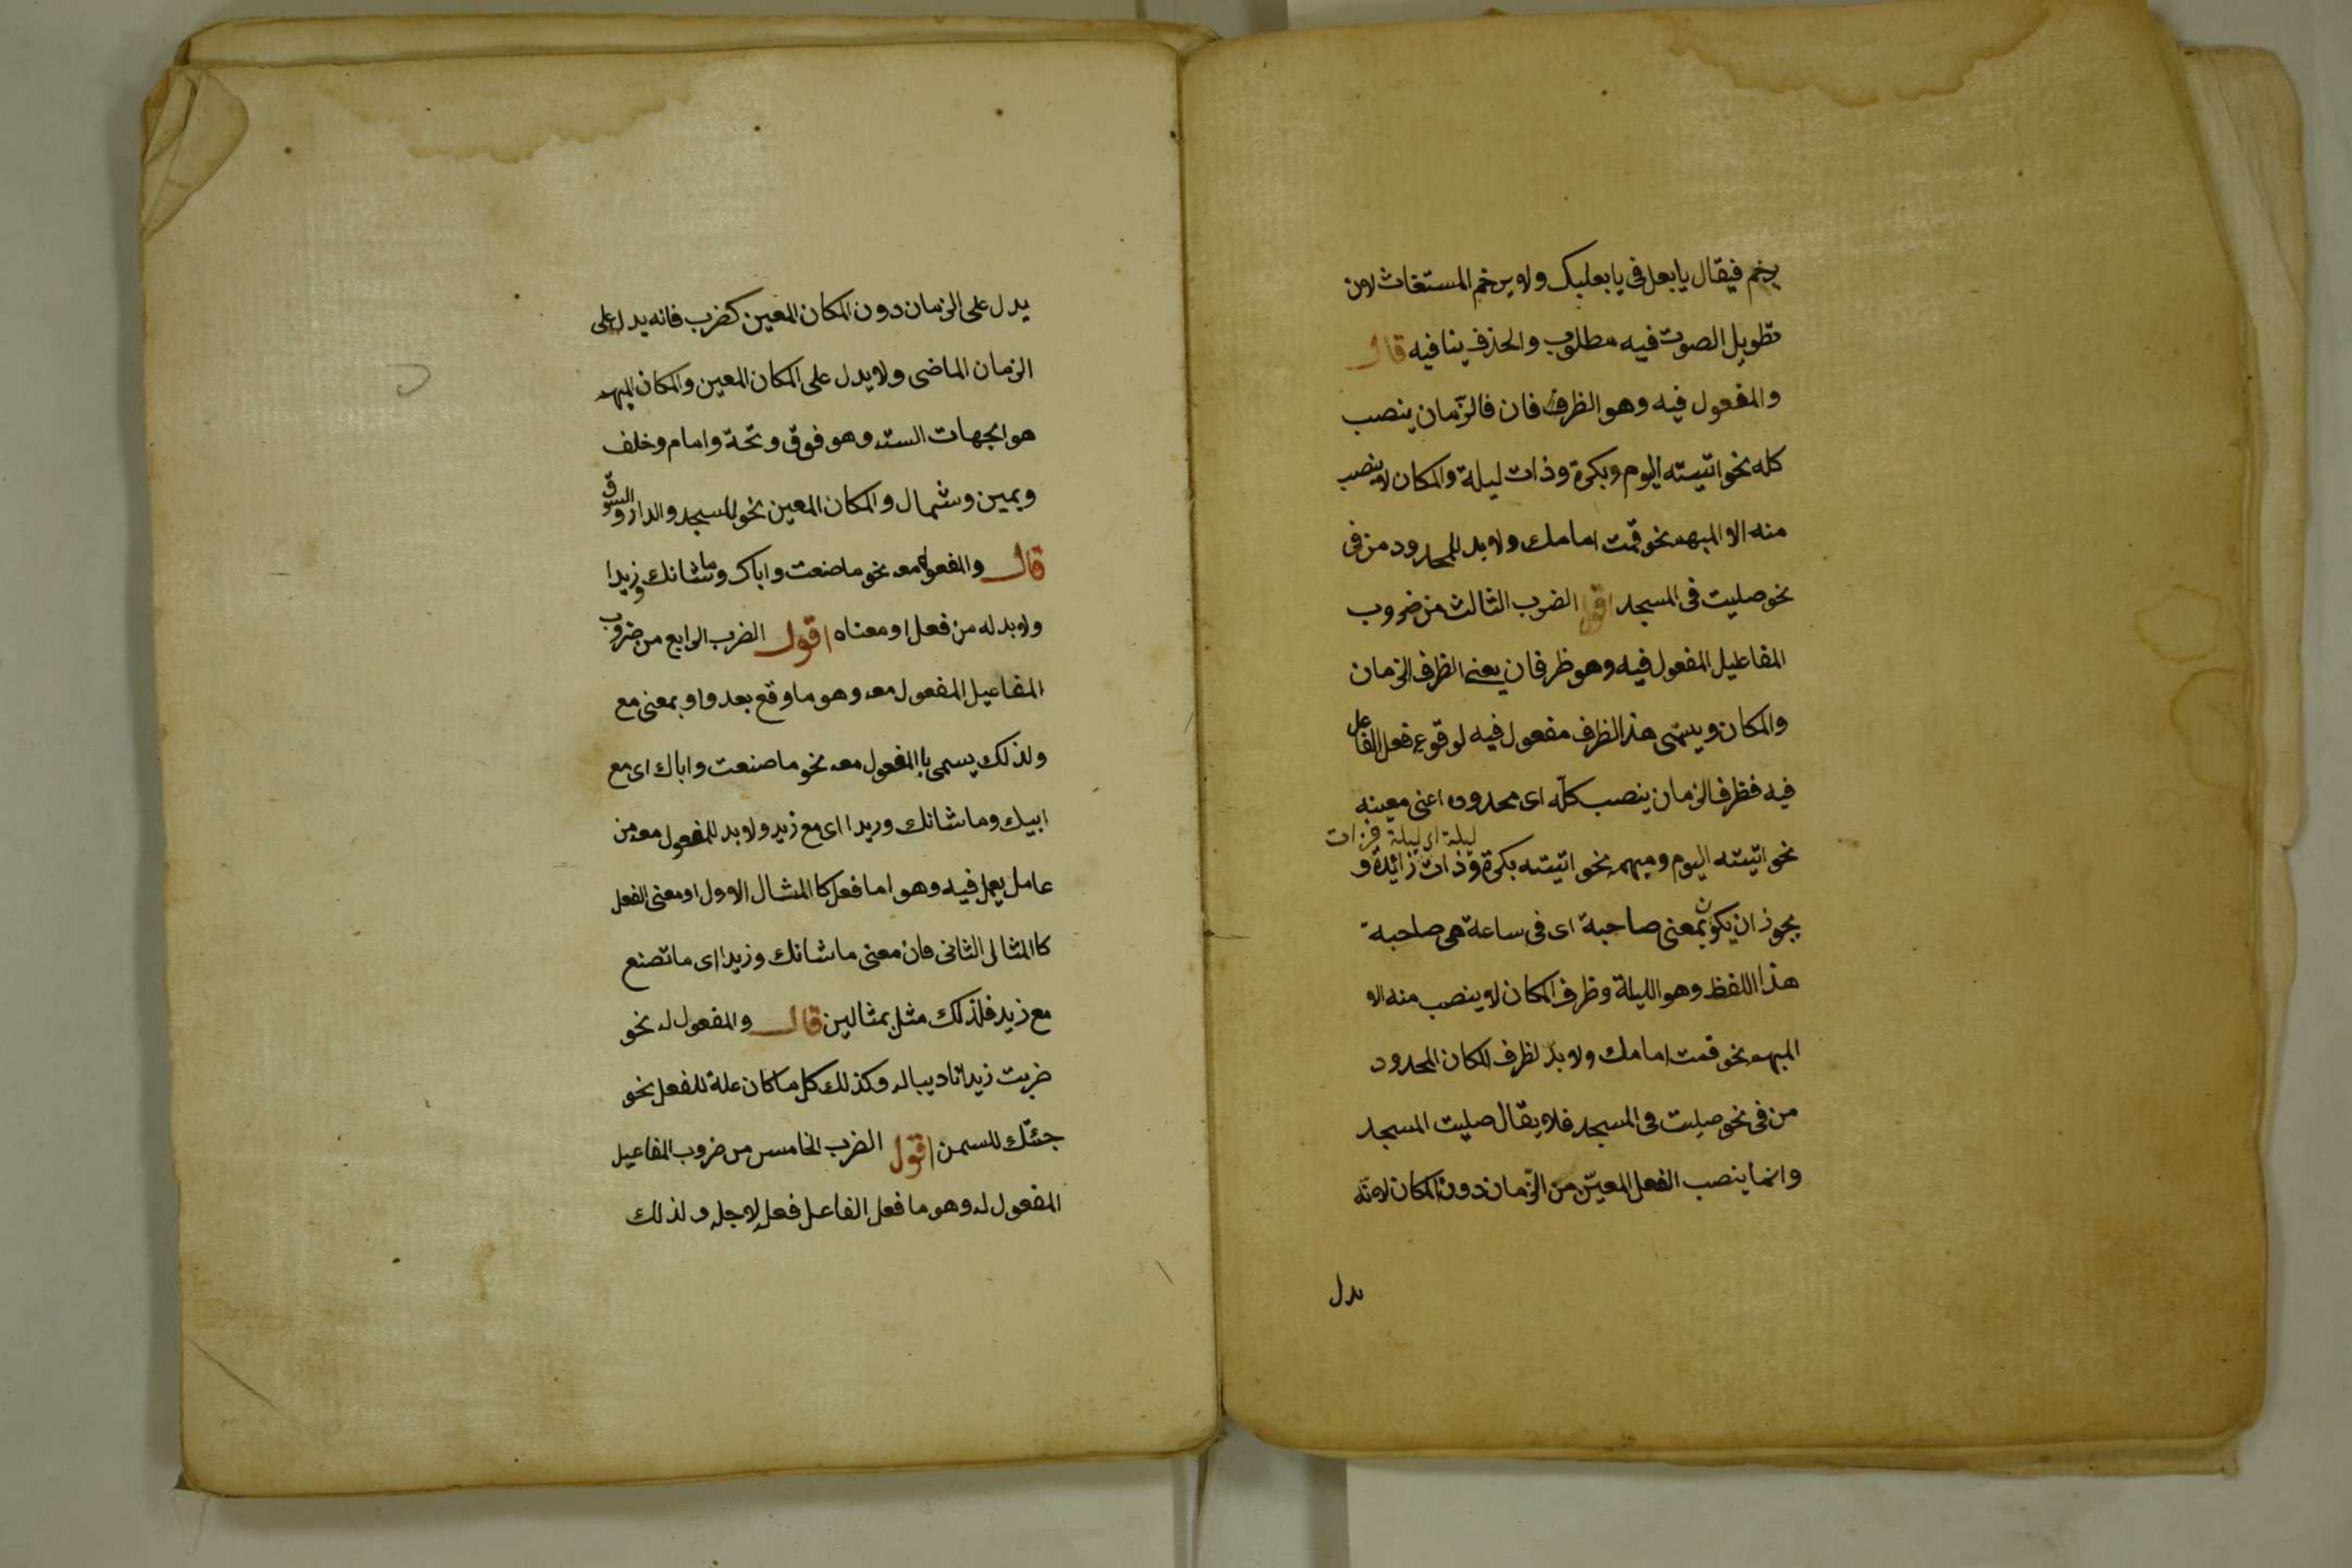 يرخم فيقال يا بعل في يا بعلبك ولا يرخم المستغاث لان
تطويل الصوت فيه مطلوب والحذف ينافيه قال
والمفعول فيه وهو الظرف فان فالزّمان ينصب
كله نحو اتيته اليوم وبكرة وذات ليلة والمكان لا ينصب
منه الا المبهم نحو قمت امامك ولا بد للمحدود من في
نحو صليت في المسجد اقول الضرب الثالث من ضروب
المفاعيل المفعول فيه وهو ظرفان يعني الظرف الزمان
والمكان ويسمّى هذا الظرف مفعول فيه لوقوع فعل الفاعل
فيه فظرف الزمان ينصب كلّه اى محدوده اعنى معينه
ليلة اى ليلة فزات
نحو اتيته اليوم ومبهمه نحو اتيته بكرة وذات زائدة و
يجوز ان يكون بمعنى صاحبة اى فى ساعة هى صاحبة
هذا اللفظ وهو الليلة وظرف المكان لا ينصب منه الا
المبهم نحو قمت امامك ولا بدّ لظرف المكان المحدود
من فى نحو صليت فى المسجد فلا يقال صليت المسجد
وانما ينصب الفعل المعيّن من الزّمان دون المكان لانّه
يدل
يدل على الزمان دون المكان المعين كضرب فانه يدل على
الزمان الماضى ولا يدل على المكان المعين والمكان المبهم
هو الجهات الست وهو فوق وتحة وامام وخلف
ويمين وشمال والمكان المعين نحو المسجد والدار والسوق
قال والمفعول معه نحو ما صنعت واباك وما شانك وزيدا
ولا بد له من فعل او معناه اقول الضرب الرابع من ضروب
المفاعيل المفعول معه وهو ما وقع بعد واو بمعنى مع
ولذلك يسمى باالمفعول معه نحو ما صنعت واباك اى مع
ابيك وما شانك وزيدا اى مع زيد ولا بد للمفعول معه من
عامل يعمل فيه وهو اما فعل كاالمثال الاول او معنى الفعل
كاالمثال الثانى فان معنى ما شانك وزيدا اى ما تصنع
مع زيد فلذلك مثل بمثالين قال والمفعول له نحو
ضربت زيدا تاديبا له وكذلك كل ما كان علة للفعل نحو
جئتك للسمن اقول الضرب الخامس من ضروب المفاعيل
المفعول له وهو ما فعل الفاعل فعله لاجله ولذلك